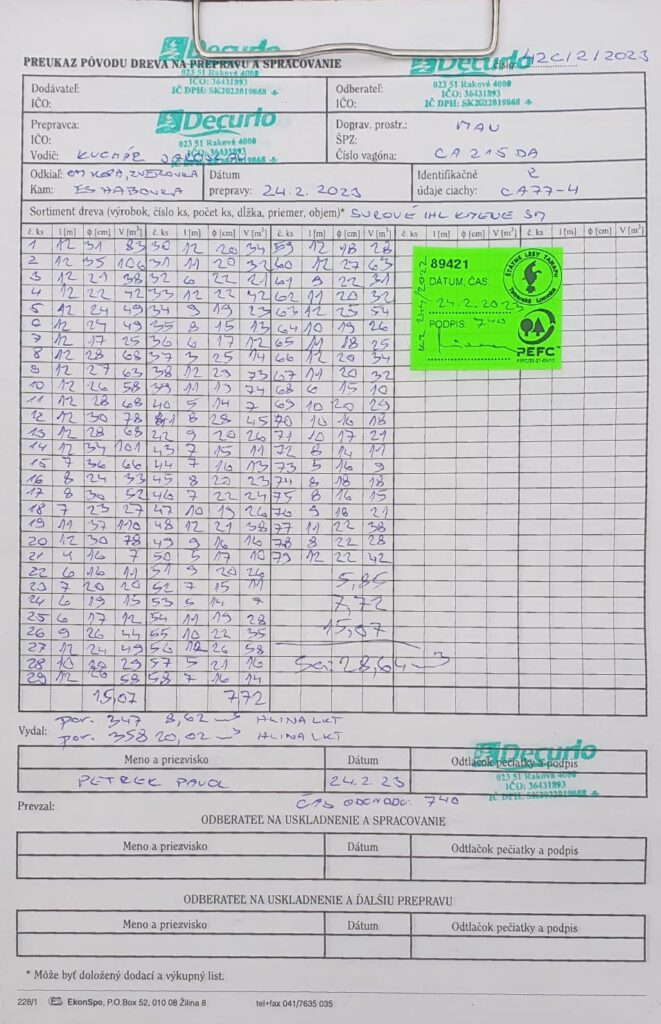 PREUKAZ PÔVODU DREVA NA PREPRAVU A SPRACOVANIE
Decurlo
023 51 Raková 4000
IČO: 36431893
IČ DPH: SK2022019868
Decurlo
023 51 Raková 4000
IČO: 36431893
IČ DPH: SK2022019868
číslo: 42C/2/2023
Dodávateľ:
IČO:
Odberateľ:
IČO:
Prepravca:
IČO:
Vodič: KUCHÁR
Decurlo
023 51 Raková 4000
IČO: 36431893
IČ DPH: SK2022019868
Doprav. prostr.: MAN
ŠPZ:
Číslo vagóna: CA 215 DA
Odkiaľ: ZVEROVKA
Kam: ES HABOVKA
Dátum
prepravy: 24.2.2023
Identifikačné 2
údaje ciachy: CA77-4
Sortiment dreva (výrobok, číslo ks, počet ks, dĺžka, priemer, objem)* SUROVÉ IHL KMENE SM
č. ks l [m] ϕ [cm] V [m³] č. ks l [m] ϕ [cm] V [m³] č. ks l [m] ϕ [cm] V [m³] č. ks l [m] ϕ [cm] V [m³] č. ks l [m] ϕ [cm] V [m³]
1 12 31 83 30 12 20 34 59 12 18 28
2 12 35 106 31 11 20 32 60 12 27 63
3 12 21 38 32 6 22 21 61 9 22 31
4 12 22 42 33 12 22 42 62 11 20 32
5 12 24 49 34 9 19 23 63 12 25 54
6 12 24 49 35 8 15 13 64 10 19 26
7 12 17 25 36 6 17 12 65 11 18 25
8 12 28 68 37 3 25 14 66 12 20 34
9 12 27 63 38 12 29 73 67 11 20 32
10 12 26 58 39 11 74 68 6 15 10
11 12 28 68 40 5 14 7 69 10 20 29
12 12 30 78 41 8 28 45 70 10 16 18
13 12 28 68 42 9 20 26 71 10 17 21
14 12 34 101 43 7 15 11 72 8 14 11
15 7 36 66 44 7 16 13 73 5 16 9
16 8 24 33 45 8 20 23 74 8 18 18
17 8 30 52 46 7 22 24 75 8 16 15
18 7 23 27 47 10 19 26 76 9 18 21
19 11 37 110 48 12 21 38 77 11 22 38
20 12 30 78 49 9 16 16 78 8 22 28
21 4 16 7 50 5 17 10 79 12 22 42
22 6 16 11 51 9 20 26
23 7 20 20 52 7 15 11 5,85
24 6 19 15 53 5 14 7 7,72
25 6 17 12 54 11 19 28 15,07
26 9 26 44 55 10 22 35
27 12 24 49 56 12 26 58
28 10 20 29 57 5 21 16 28,64 m³
29 12 26 58 58 7 16 14
15,07 7,72
89421
DÁTUM, ČAS
24.2.2023
PODPIS: 740
ŠTÁTNE LESY TANAPU
Tatranská Lomnica
PEFC
Vydal: por. 347 8,62 m³ HLINA LKT
por. 358 20,02 m³ HLINA LKT
Decurlo
023 51 Raková 4000
IČO: 36431893
IČ DPH: SK2022019868
Meno a priezvisko Dátum Odtlačok pečiatky a podpis
PETREK PAVOL 24.2.23
Prevzal: ČAS ODCHODU: 740
ODBERATEĽ NA USKLADNENIE A SPRACOVANIE
Meno a priezvisko Dátum Odtlačok pečiatky a podpis
ODBERATEĽ NA USKLADNENIE A ĎALŠIU PREPRAVU
Meno a priezvisko Dátum Odtlačok pečiatky a podpis
* Môže byť doložený dodací a výkupný list.
228/1 EkonSpo, P.O.Box 52, 010 08 Žilina 8 tel+fax 041/7635 035